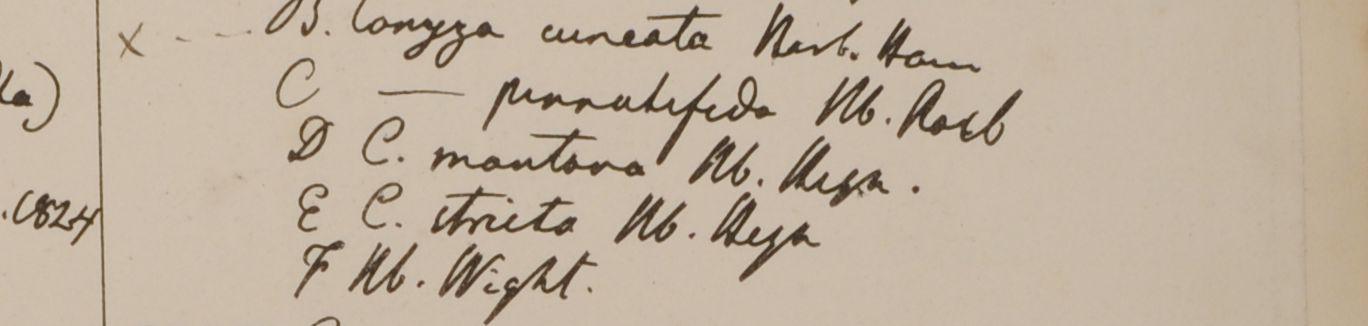 la)
.1824
x - - - B. Conyza cuneata Herb. Ham
C — pinnatifida Hb. Roxb
D C. montana Hb. Heyn.
E C. stricta Hb. Heyn
F Hb. Wight.